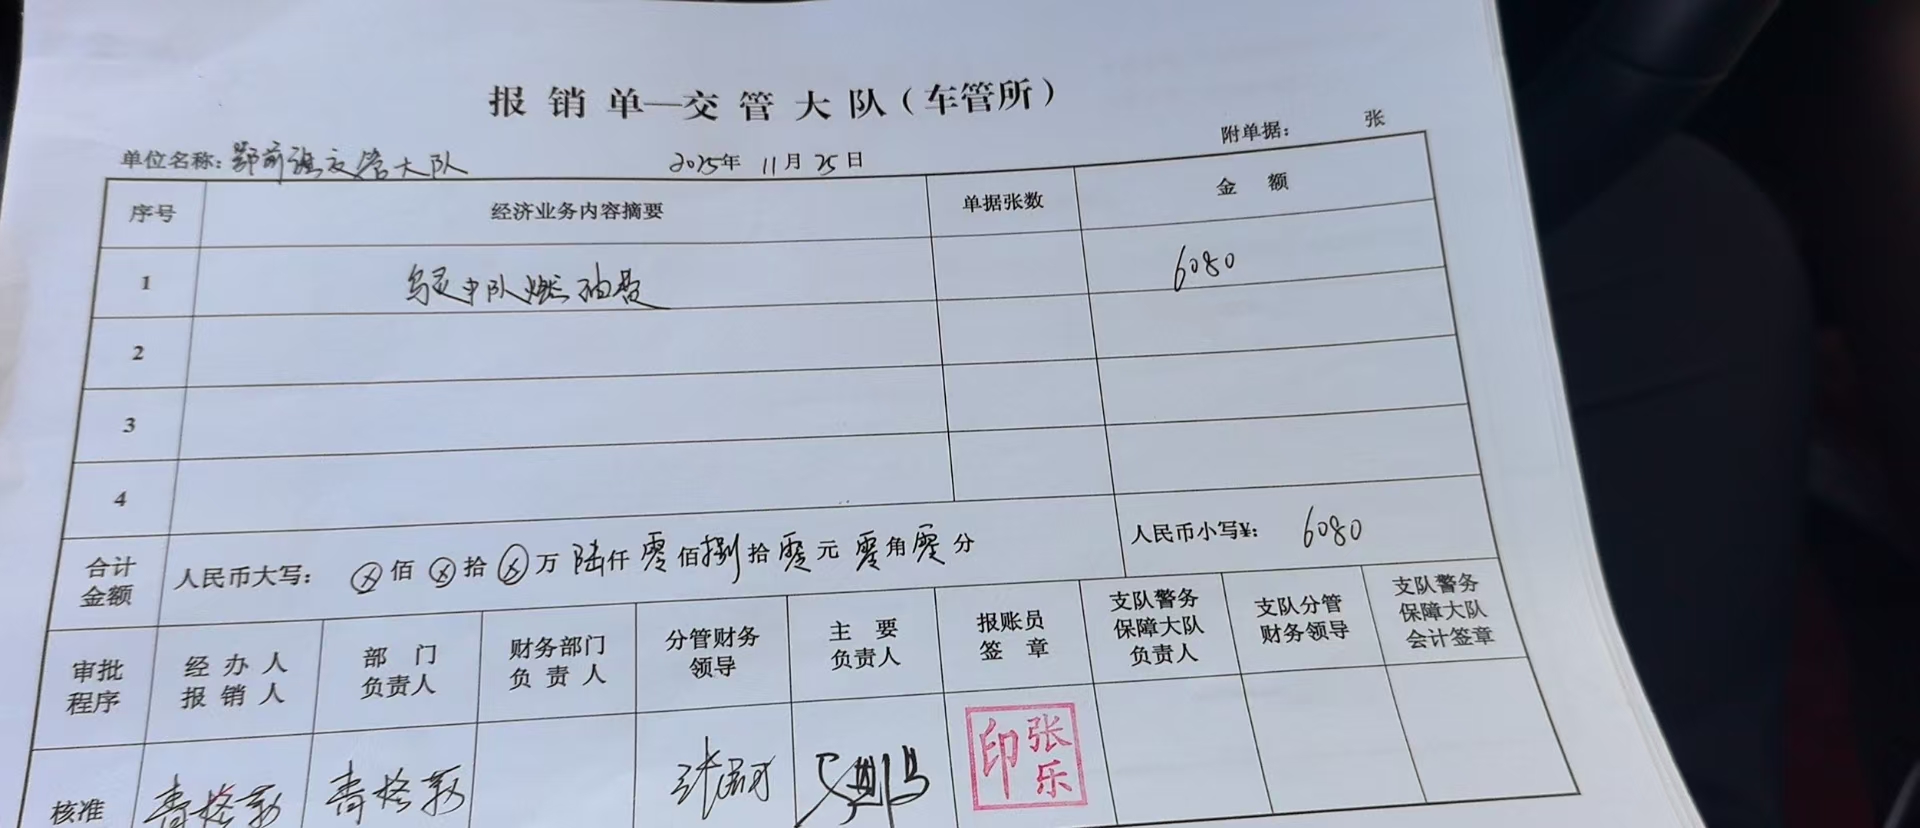 报销单—交管大队（车管所）
单位名称：鄂前旗交管大队 2025年 11月 25日 附单据： 张
序号 经济业务内容摘要 单据张数 金额
1 中队燃油费 6080
2
3
4
合计金额 人民币大写：ⓧ佰ⓧ拾ⓧ万陆仟零佰捌拾零元零角零分 人民币小写¥：6080
审批程序 经办人报销人 部门负责人 财务部门负责人 分管财务领导 主要负责人 报账员签章 支队警务保障大队负责人 支队分管财务领导 支队警务保障大队会计签章
核准 青格勒 青格勒 张乐印